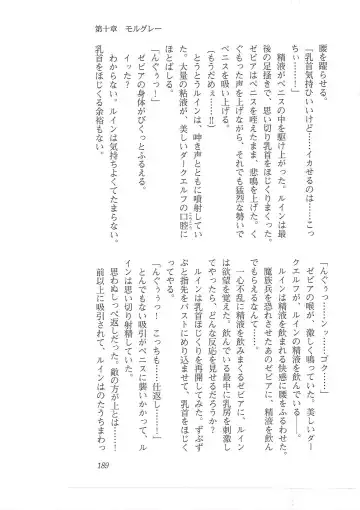 第十章　モルグレー
腰を踊らせる。
「乳首気持ちいいけど……イカせるのは……こっ
ちぃ………！」
精液がペニスの中を駆け上がった。ルインは最
後の足掻きで、思い切り乳首をほじくりまくった。
ゼビアはペニスを咥えたまま、悲鳴を上げた。く
ぐもった声を上げながら、それでも猛烈な勢いで
ペニスを吸い上げる。
（もうだめぇ……！！）
とうとうルインは、呻き声とともに噴射してい
た。大量の粘液が、美しいダークエルフの口腔に
ほとばしる。
「んぐぅっ！」
ゼビアの身体がびくっとふるえる。
「んぐぅっ！」
わからない。ルインは気持ちよくてたまらない。
乳首をほじくる余裕もない。
「んぐぅ……ゴクッ……ゴク……」
ゼビアの喉が、激しく鳴っていた。美しいダー
クエルフが、ルインの精液を飲んでいる――。
ルインは精液を飲まれる快感に腰をふるわせた。
魔族兵を恐れさせたあのゼビアに、精液を飲ん
でもらえるなんて……。
一心不乱に精液を飲みまくるゼビアに、ルイン
は欲望を覚えた。飲んでいる最中に乳房を刺激し
てやったら、どんな反応を見せるだろうか？
ルインは乳首ほじくりを再開してみた。ずぶず
ぶと指先をバストにめり込ませて、乳首をほじく
ってやる。
「んぐぅぅっ！　こっちも……仕返し……！」
とんでもない吸引がペニスに襲いかかって、ル
インは思い切り射精していた。
思わぬしっぺ返しだった。敵の方が上とは……
前以上に吸引されて、ルインはのたうちまわっ
189